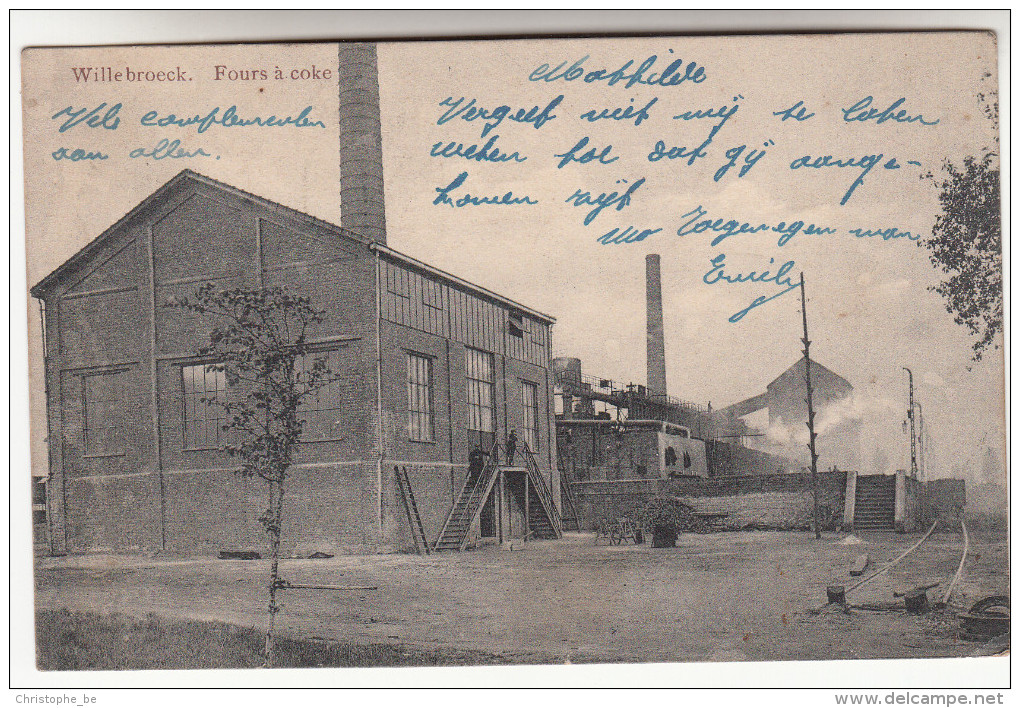 Willebroeck. Fours à coke
Vele complementen
aan allen.
Mathilde
Vergeet niet mij te laten
weten hoe dat gij aange-
komen zijt
Uw Toegenegen man
Emile
Christophe_be
http://www.delcampe.net